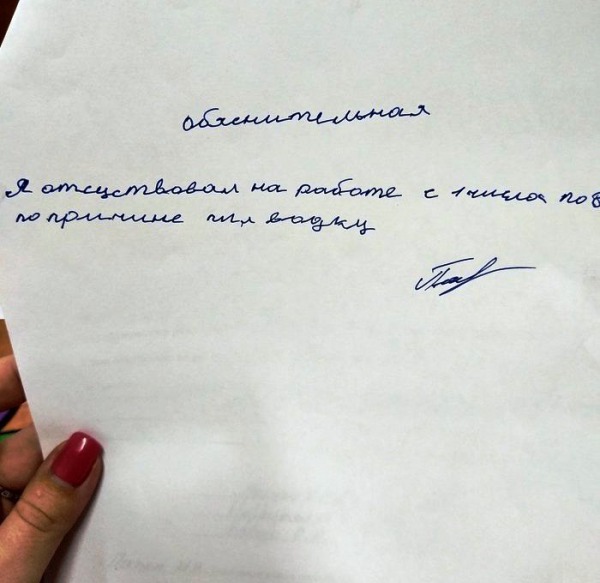 обяснительная
Я отсуствовал на работе с 1 числа по 8
по причине пил водку